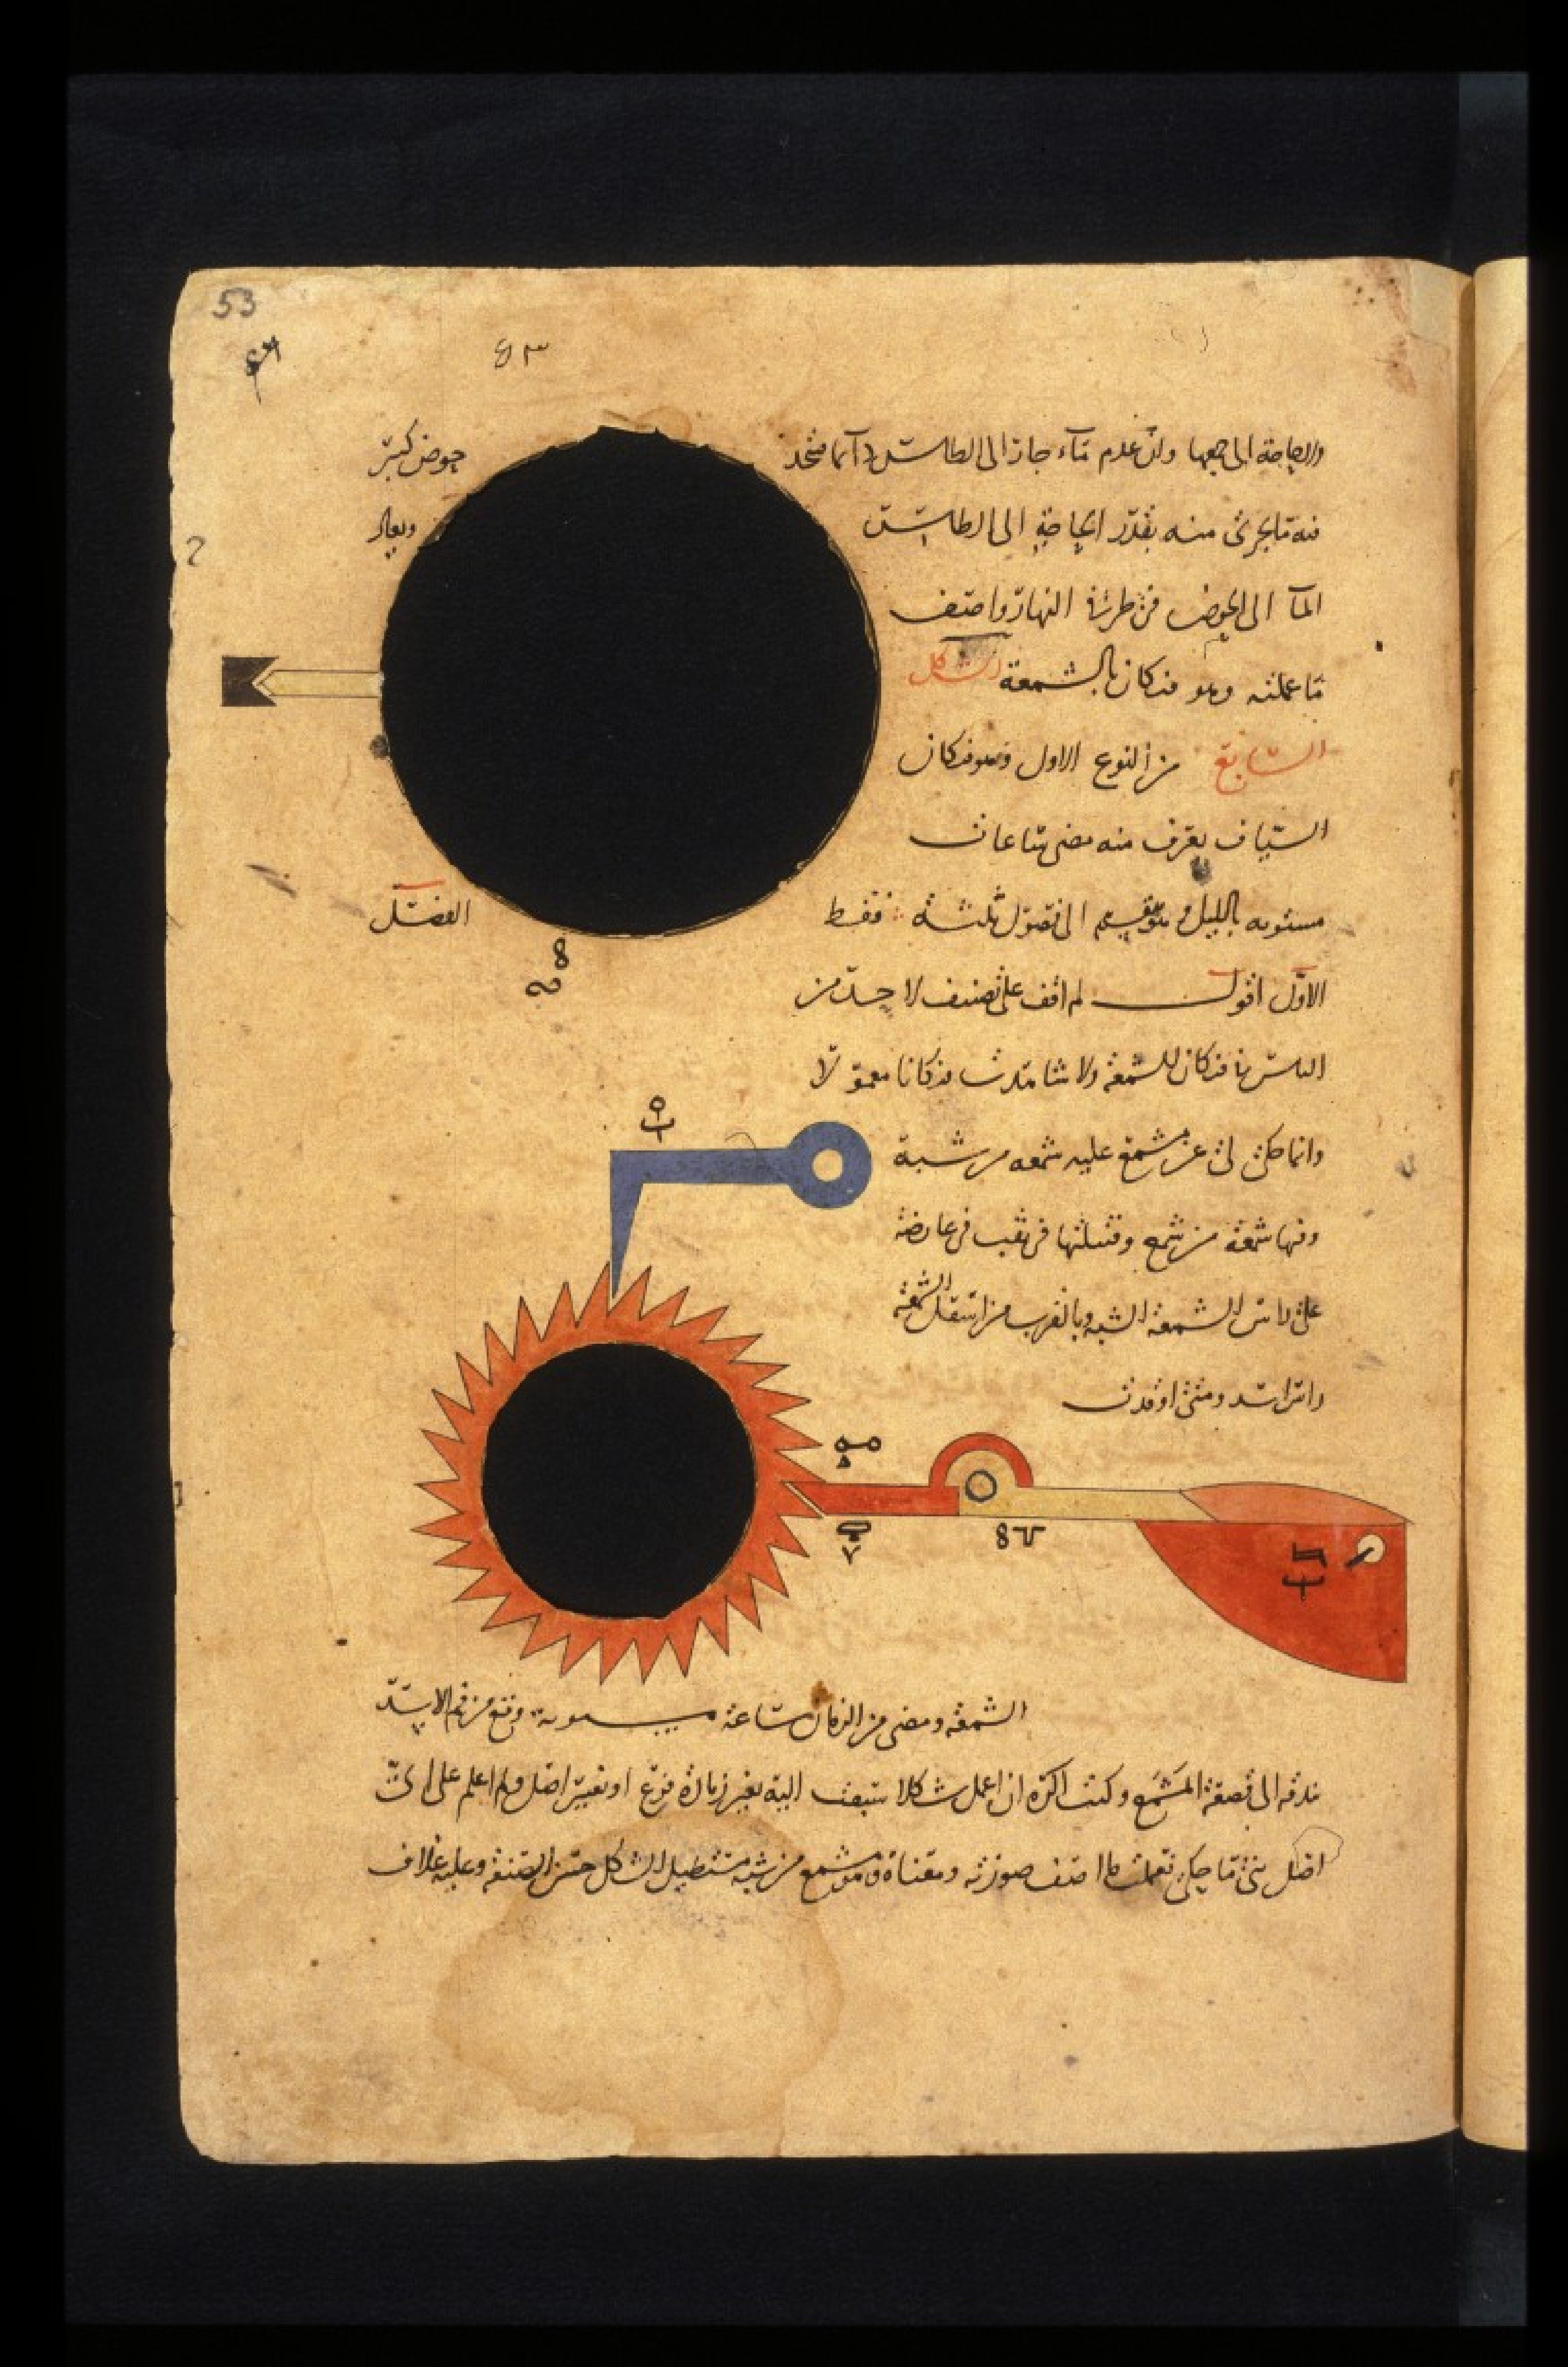 53
٥٣
الى جميعها وان عدم ماء جار الى الطاس دائما فتخذ حوض كبير
منه ما يجرى منه بقدر الحاجة الى الطاس ويعاد
الماء الى الحوض فى طرفى النهار واصف
ما عملته وهو فنكان بالشمعة الشكل
السابع من النوع الاول وهو فنكان
السياف يعرف منه مضى ساعات
مستويه بالليل وينقسم الى فصول ثلثة فقط الفصل
الاول اقول لم اقف على تصنيف لاحد من
الناس فنكان للشمعه ولا شاهدت فنكانا معمولا
وانما حكى لى عن مشمع عليه شمعه من شبه
وفيها شمعه من شمع وفتيلتها فى ثقب فى عارضه
على راس الشمعه الشبه وبالقرب من اسفل الشمعه
راس اسد ومتى اوقدت
الشمعه ومضى من الزمان ساعة مستوية وقع من فم الاسد
بندقه الى قصعة المشمع وكنت اكره ان اعمل شكلا سبقت اليه بغير زيادة فرع او تغيير اصل ولم اعلم على اى
اصل بنى ما حكى فعملت ما اصف صورته ومعناه وهو مشمع من شبه مستطيل الشكل حسن الصنعه وعليه غلاف